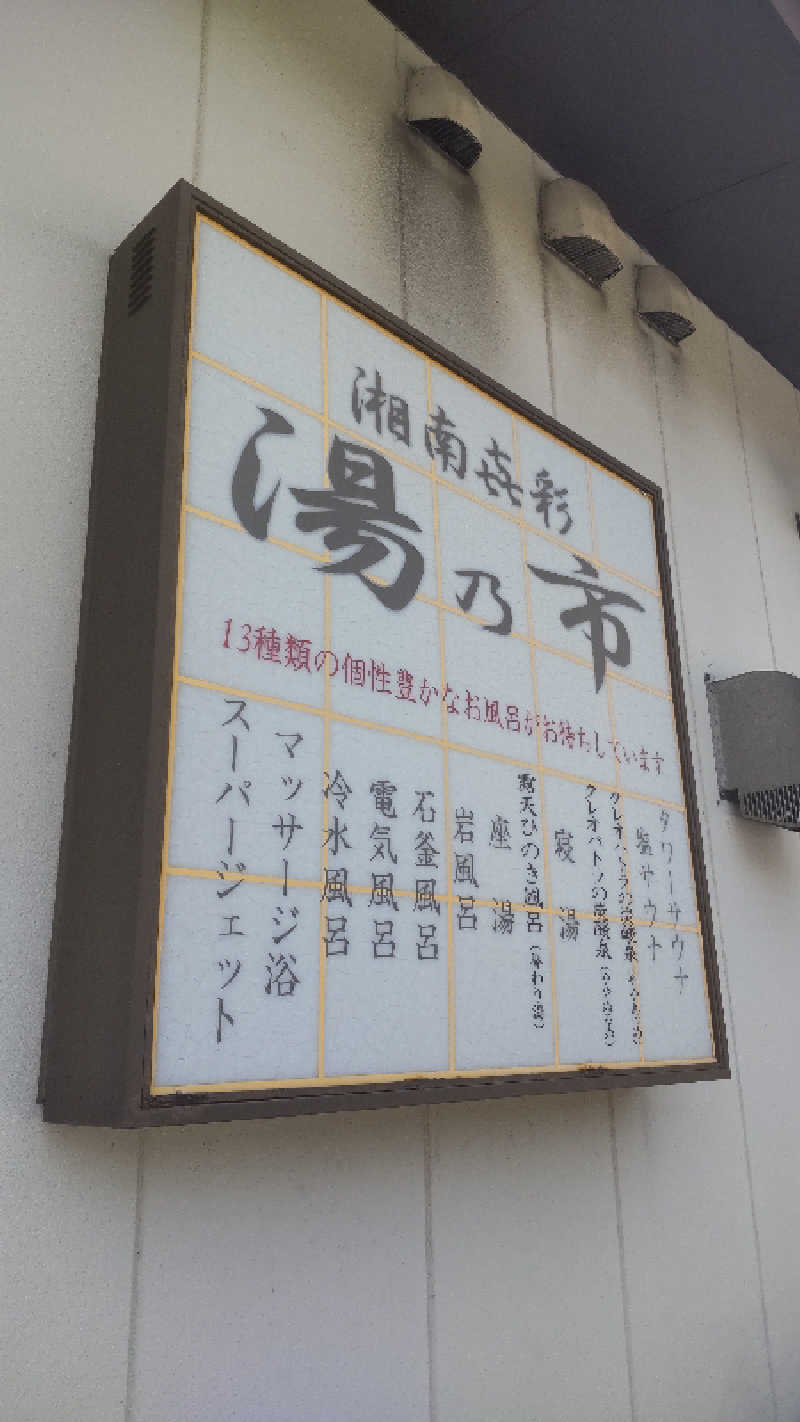 湘南㐂彩
湯乃市
13種類の個性豊かなお風呂がお待ちしています
タワーサウナ
塩サウナ
クレオパトラの炭酸泉
クレオパトラの炭酸泉
寝湯
露天ひのき風呂（替わり湯）
座湯
岩風呂
石釜風呂
電気風呂
冷水風呂
マッサージ浴
スーパージェット